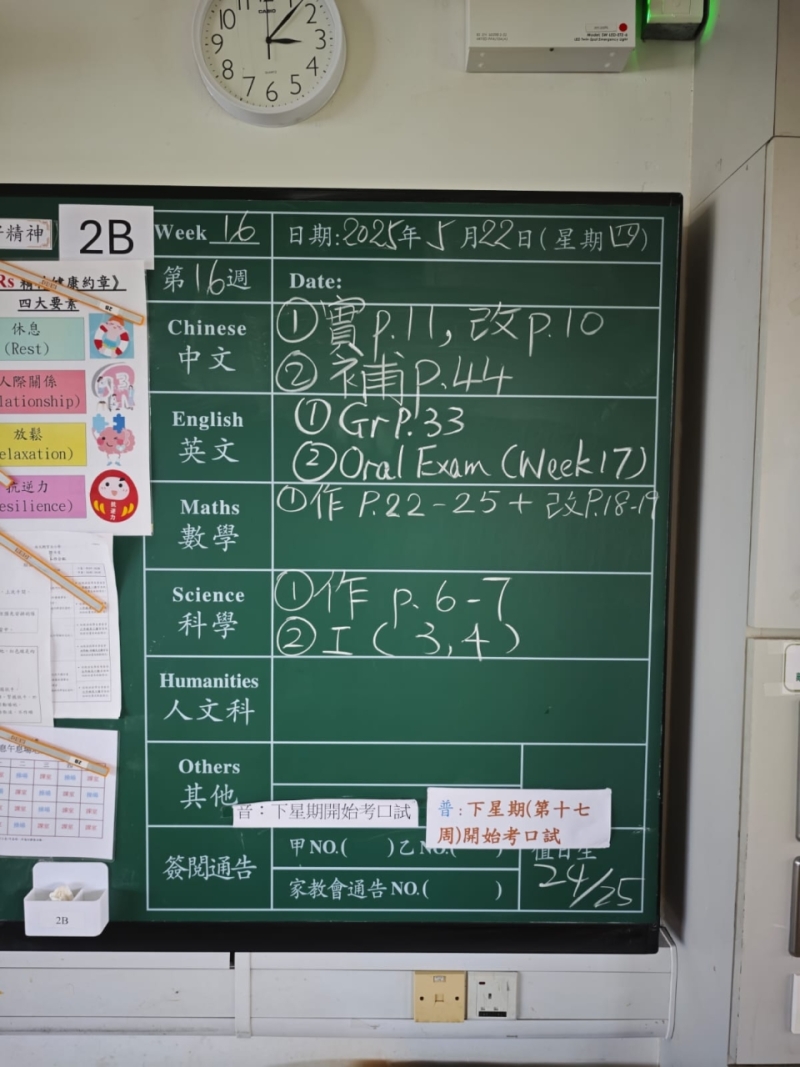 10
2
9
3
8
4
7
6
5
CASIO
精神
2B
Week 16
日期:2025年5月22日(星期四)
第16週
Date:
Rs 精神健康約章》
四大要素
休息
(Rest)
人際關係
lationship)
放鬆
elaxation)
抗逆力
esilience)
Chinese
中文
①實p.11, 改p.10
②補p.44
English
英文
①Gr P.33
②Oral Exam (Week 17)
Maths
數學
①作 P.22-25 + 改P.18-19
Science
科學
①作 p.6-7
②工(3,4)
Humanities
人文科
Others
其他
音：下星期開始考口試
普:下星期(第十七
周)開始考口試
簽閱通告
甲NO.( )乙NO.(
值日生
24/25
家教會通告NO.( )
2B